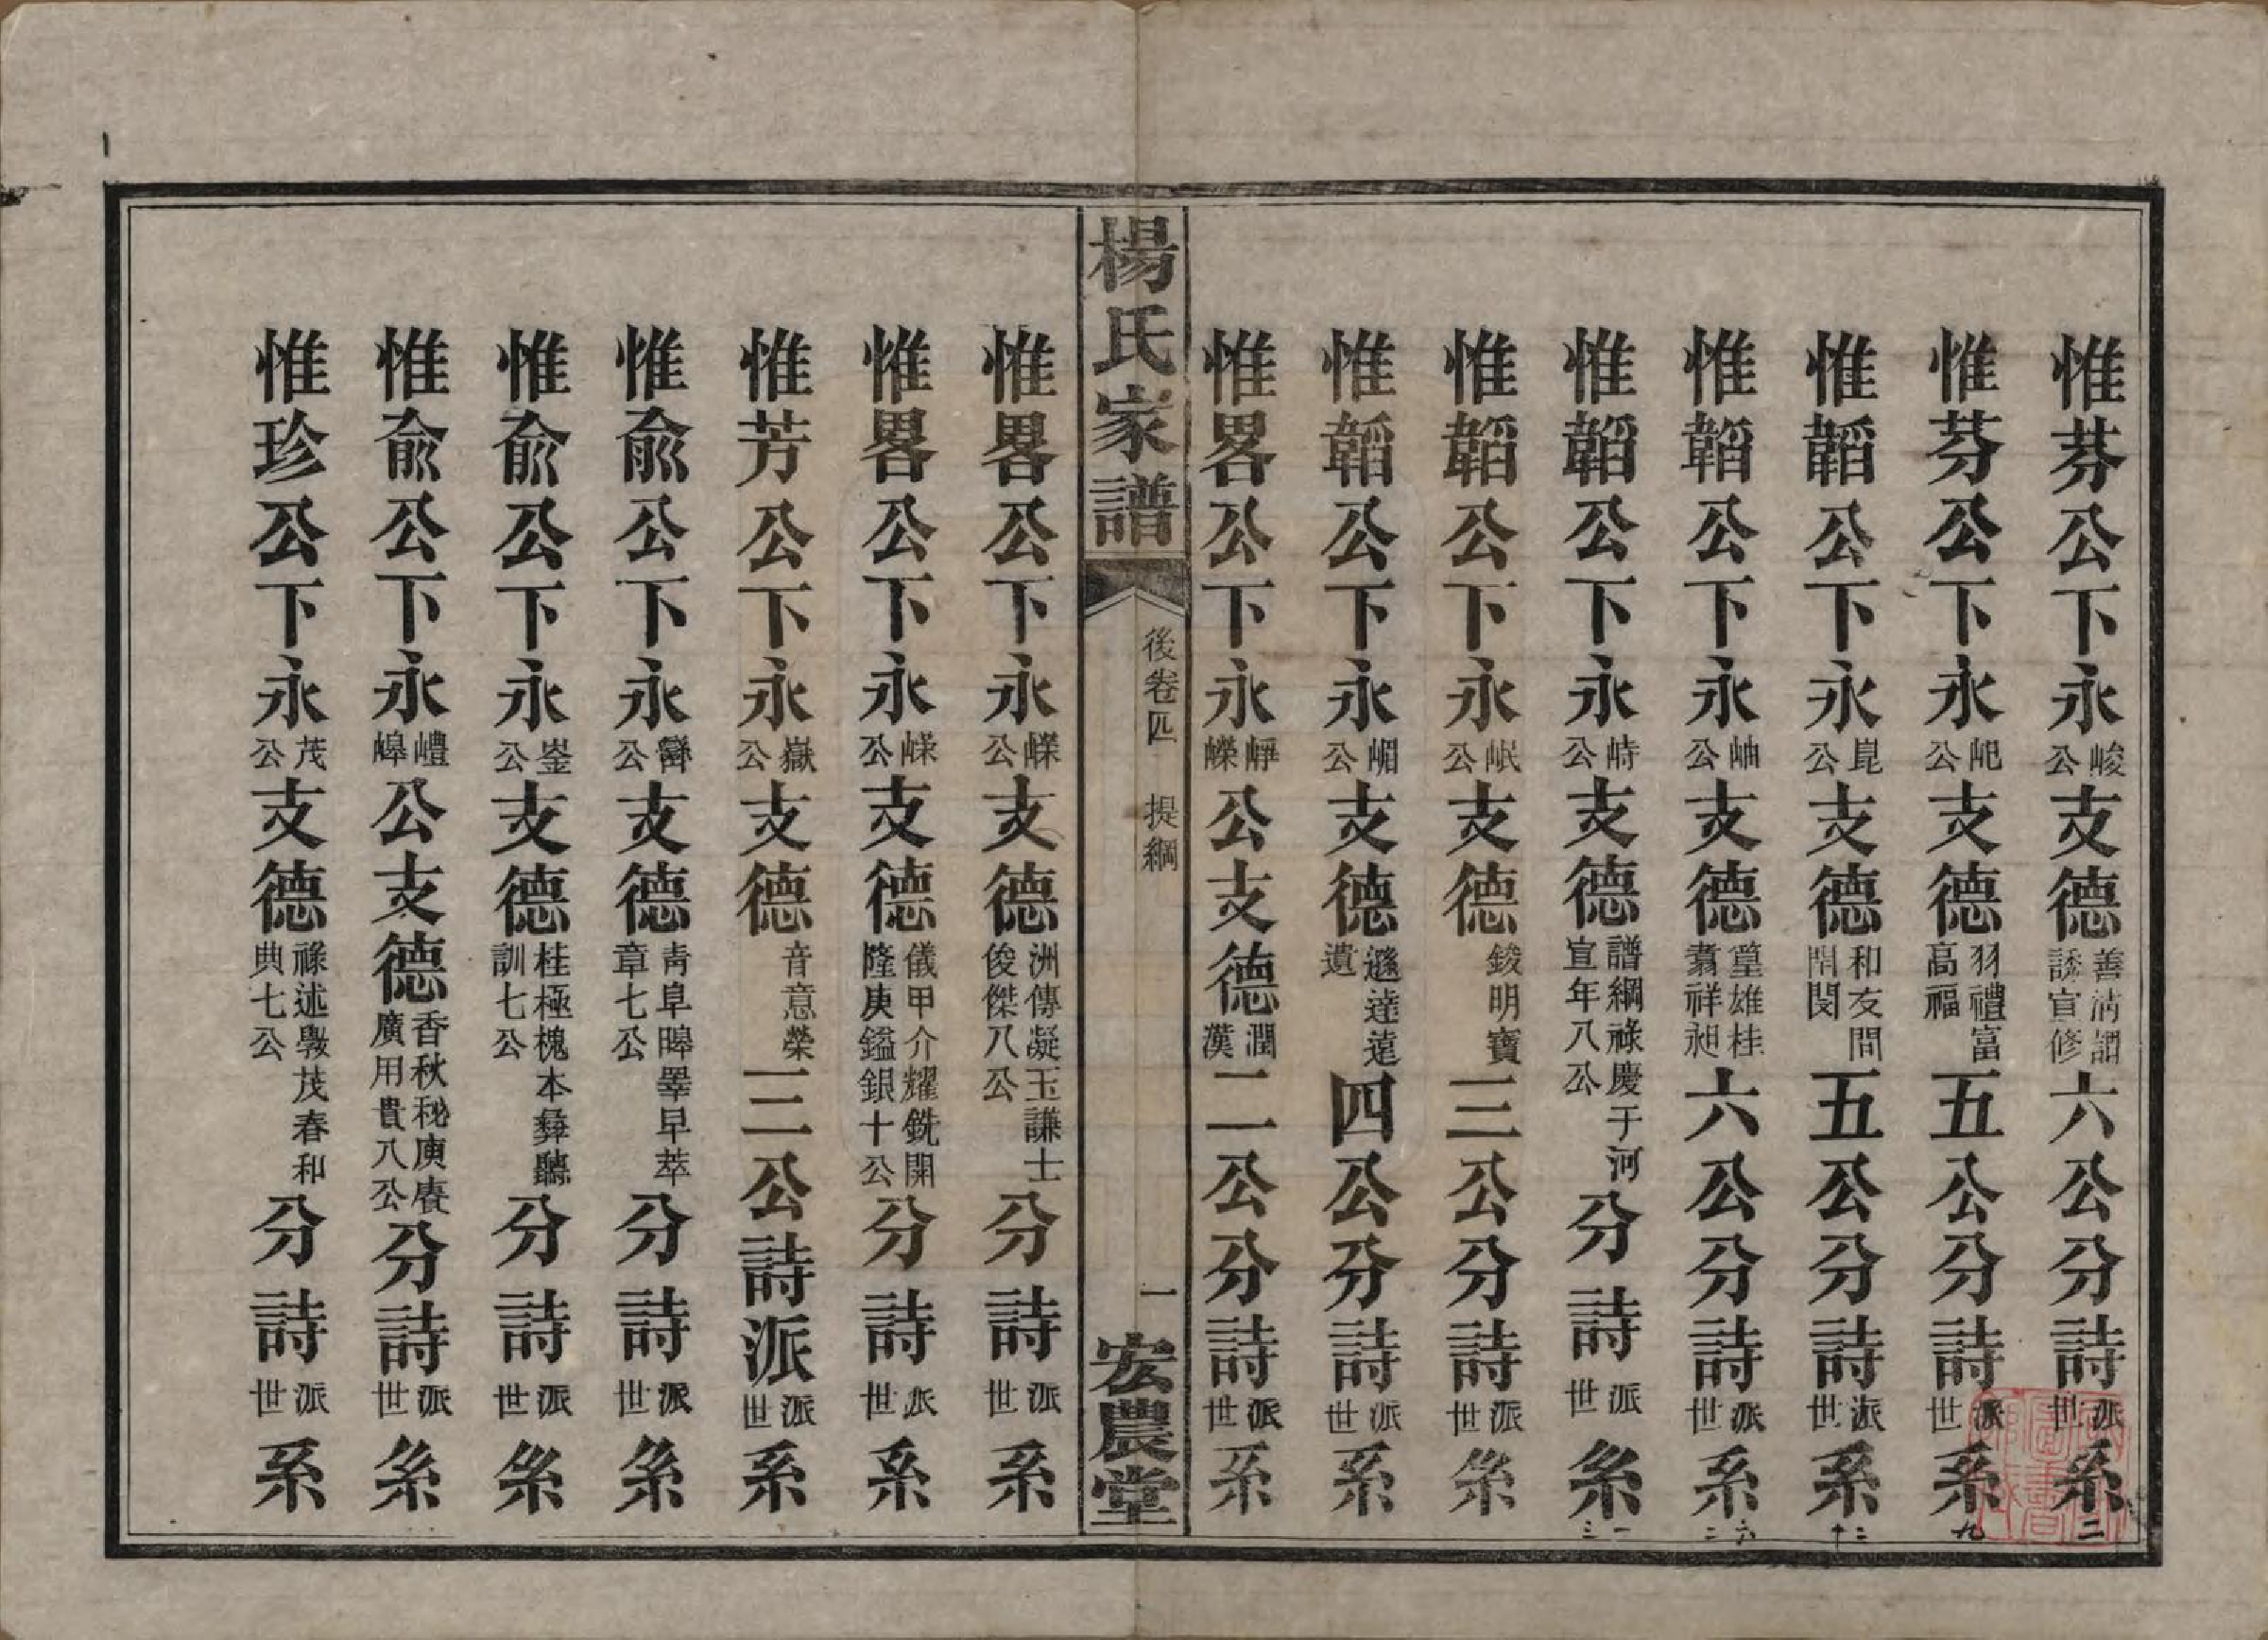 惟芬公下永峻公支德善清謂誘宣修六公分詩派世系二
惟芬公下永𡵆公支德羽禮富高福五公分詩派世系九
惟韜公下永崑公支德和友間閈閔五公分詩派世系二十
惟韜公下永岫公支德篁雄桂翥祥昶六公分詩派世系
惟韜公下永峙公支德譜綱祿慶于河宣年八公分詩派世系
惟韜公下永岷公支德鋑明寶三公分詩派世系
惟韜公下永嵋公支德遜達遠遺四公分詩派世系
惟畧公下永崢嶸公支德潤漢二公分詩派世系
楊氏家譜 後卷四 提綱 一 宏農堂
惟畧公下永嶸公支德洲傳凝玉謙士俊傑八公分詩派世系
惟畧公下永嶸公支德儀甲介耀銑開隆庚鎰銀十公分詩派世系
惟芳公下永嶽公支德音意榮三公詩派派世系
惟俞公下永巒公支德青阜暤睪早萃章七公分詩派世系
惟俞公下永崟公支德桂極槐本彝聽訓七公分詩派世系
惟俞公下永嶆公支德香秋秘庚賡廣用貴八公分詩派世系
惟珍公下永茂公支德祿述斅茂春和典七公分詩派世系